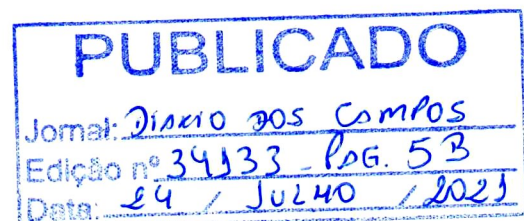 PUBLICADO
Jornal: DIARIO DOS CAMPOS
Edição nº 34133 - PAG. 5B
Data: 24 / JULHO / 2021